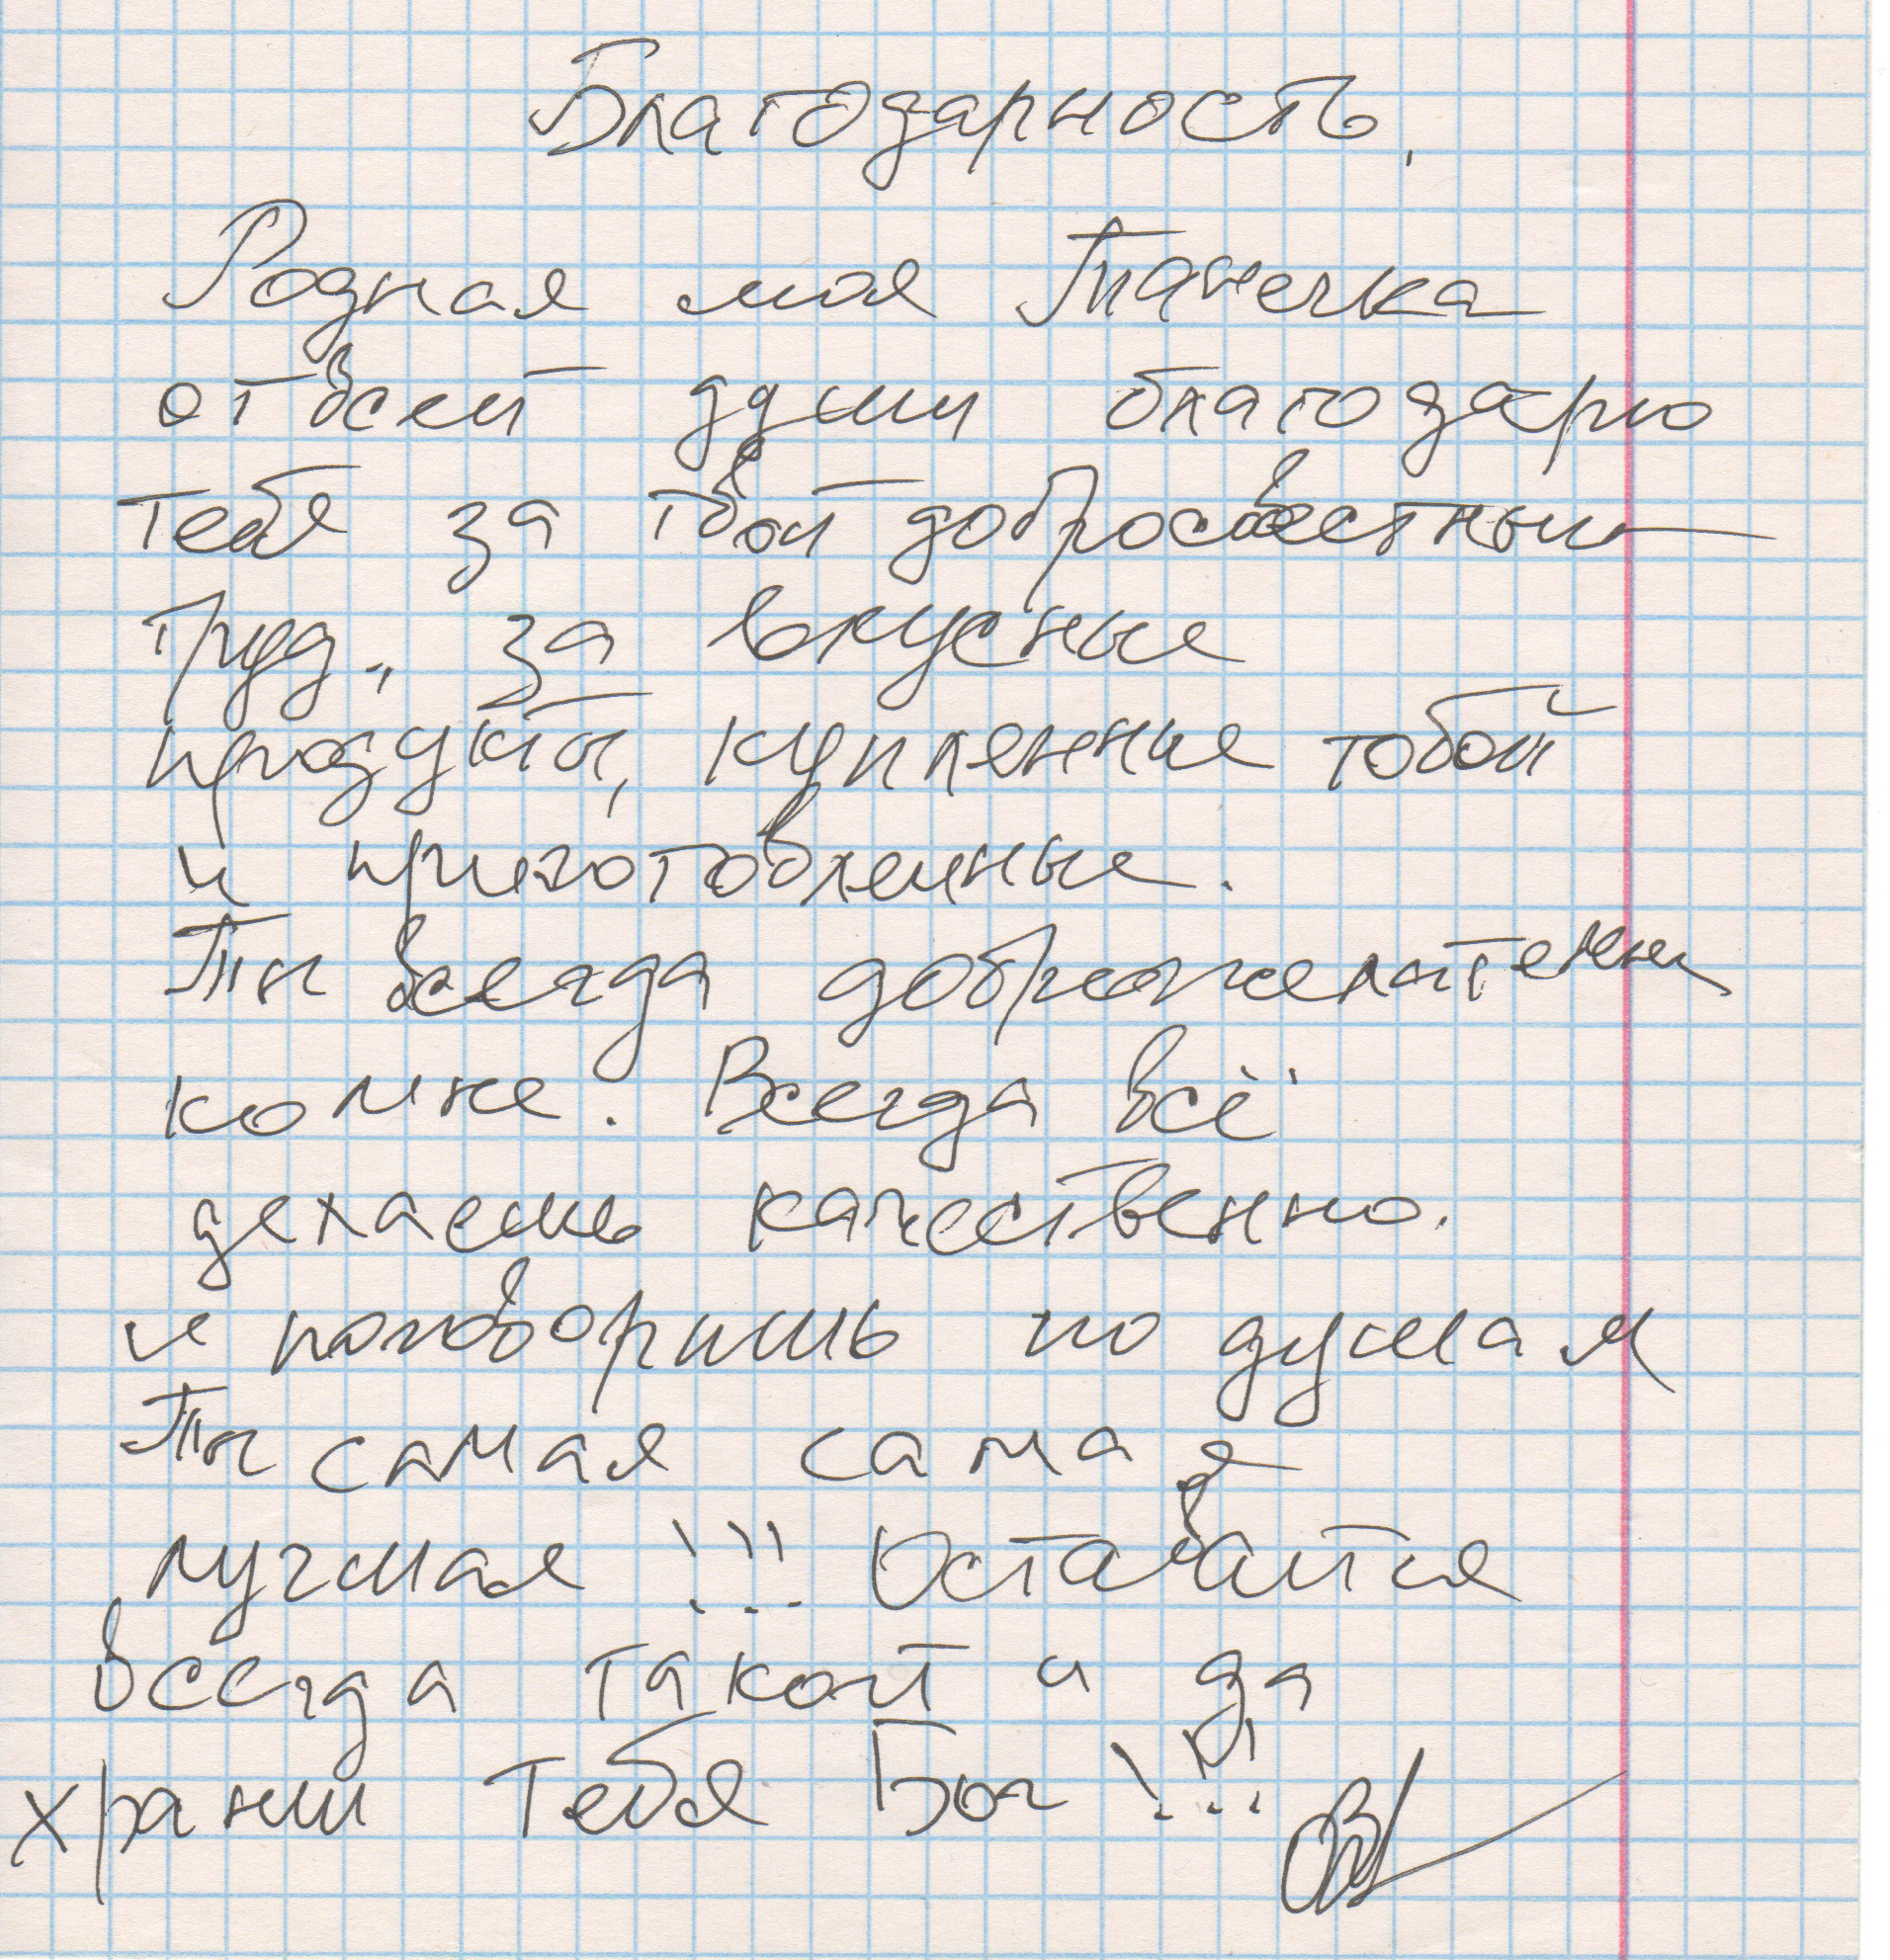 Благодарность.
Родная моя Танечка
от всей души благодарю
тебя за твой добросовестный
труд, за вкусные
продукты, купленные тобой
и приготовленные.
Ты всегда доброжелательны
ко мне. Всегда всё
делаешь качественно.
и поговоришь по душам
Ты самая самая
лучшая!!! Оставайтся
всегда такой и да
храни тебя Бог!!!